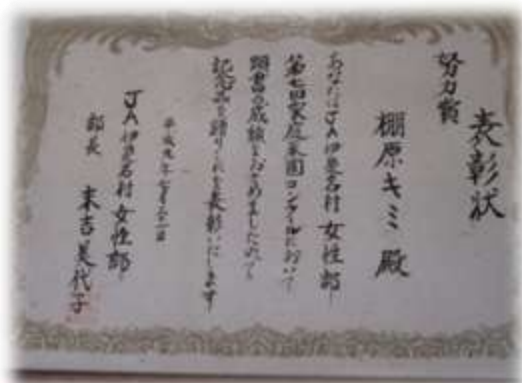 表彰状
努力賞
棚原キミ 殿
あなたはJA伊是名村女性部
第七回家庭菜園コンクールにおいて
頭書の成績をおさめましたので
記念品を贈りこれを表彰いたします
平成九年
JA伊是名村女性部
部長 末吉美代子